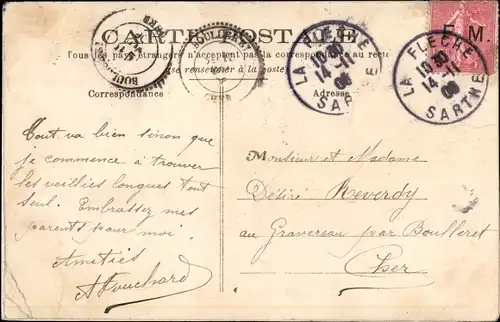 CARTE POSTALE
Tous les pays étrangers n'acceptent pas la correspondance
se renseigner à la poste
Correspondance
Adresse
BOULLERET
CHER
LA FLÈCHE
14-11
SARTHE
LA FLÈCHE
10 30
14-11
SARTHE
F. M.
Tout va bien sinon que
je commence à trouver
les veillées longues tout
seul. Embrassez mes
parents pour moi.
Amitiés
Monsieur et Madame
Désiré Reverdy
au Gravereau par Boulleret
Cher